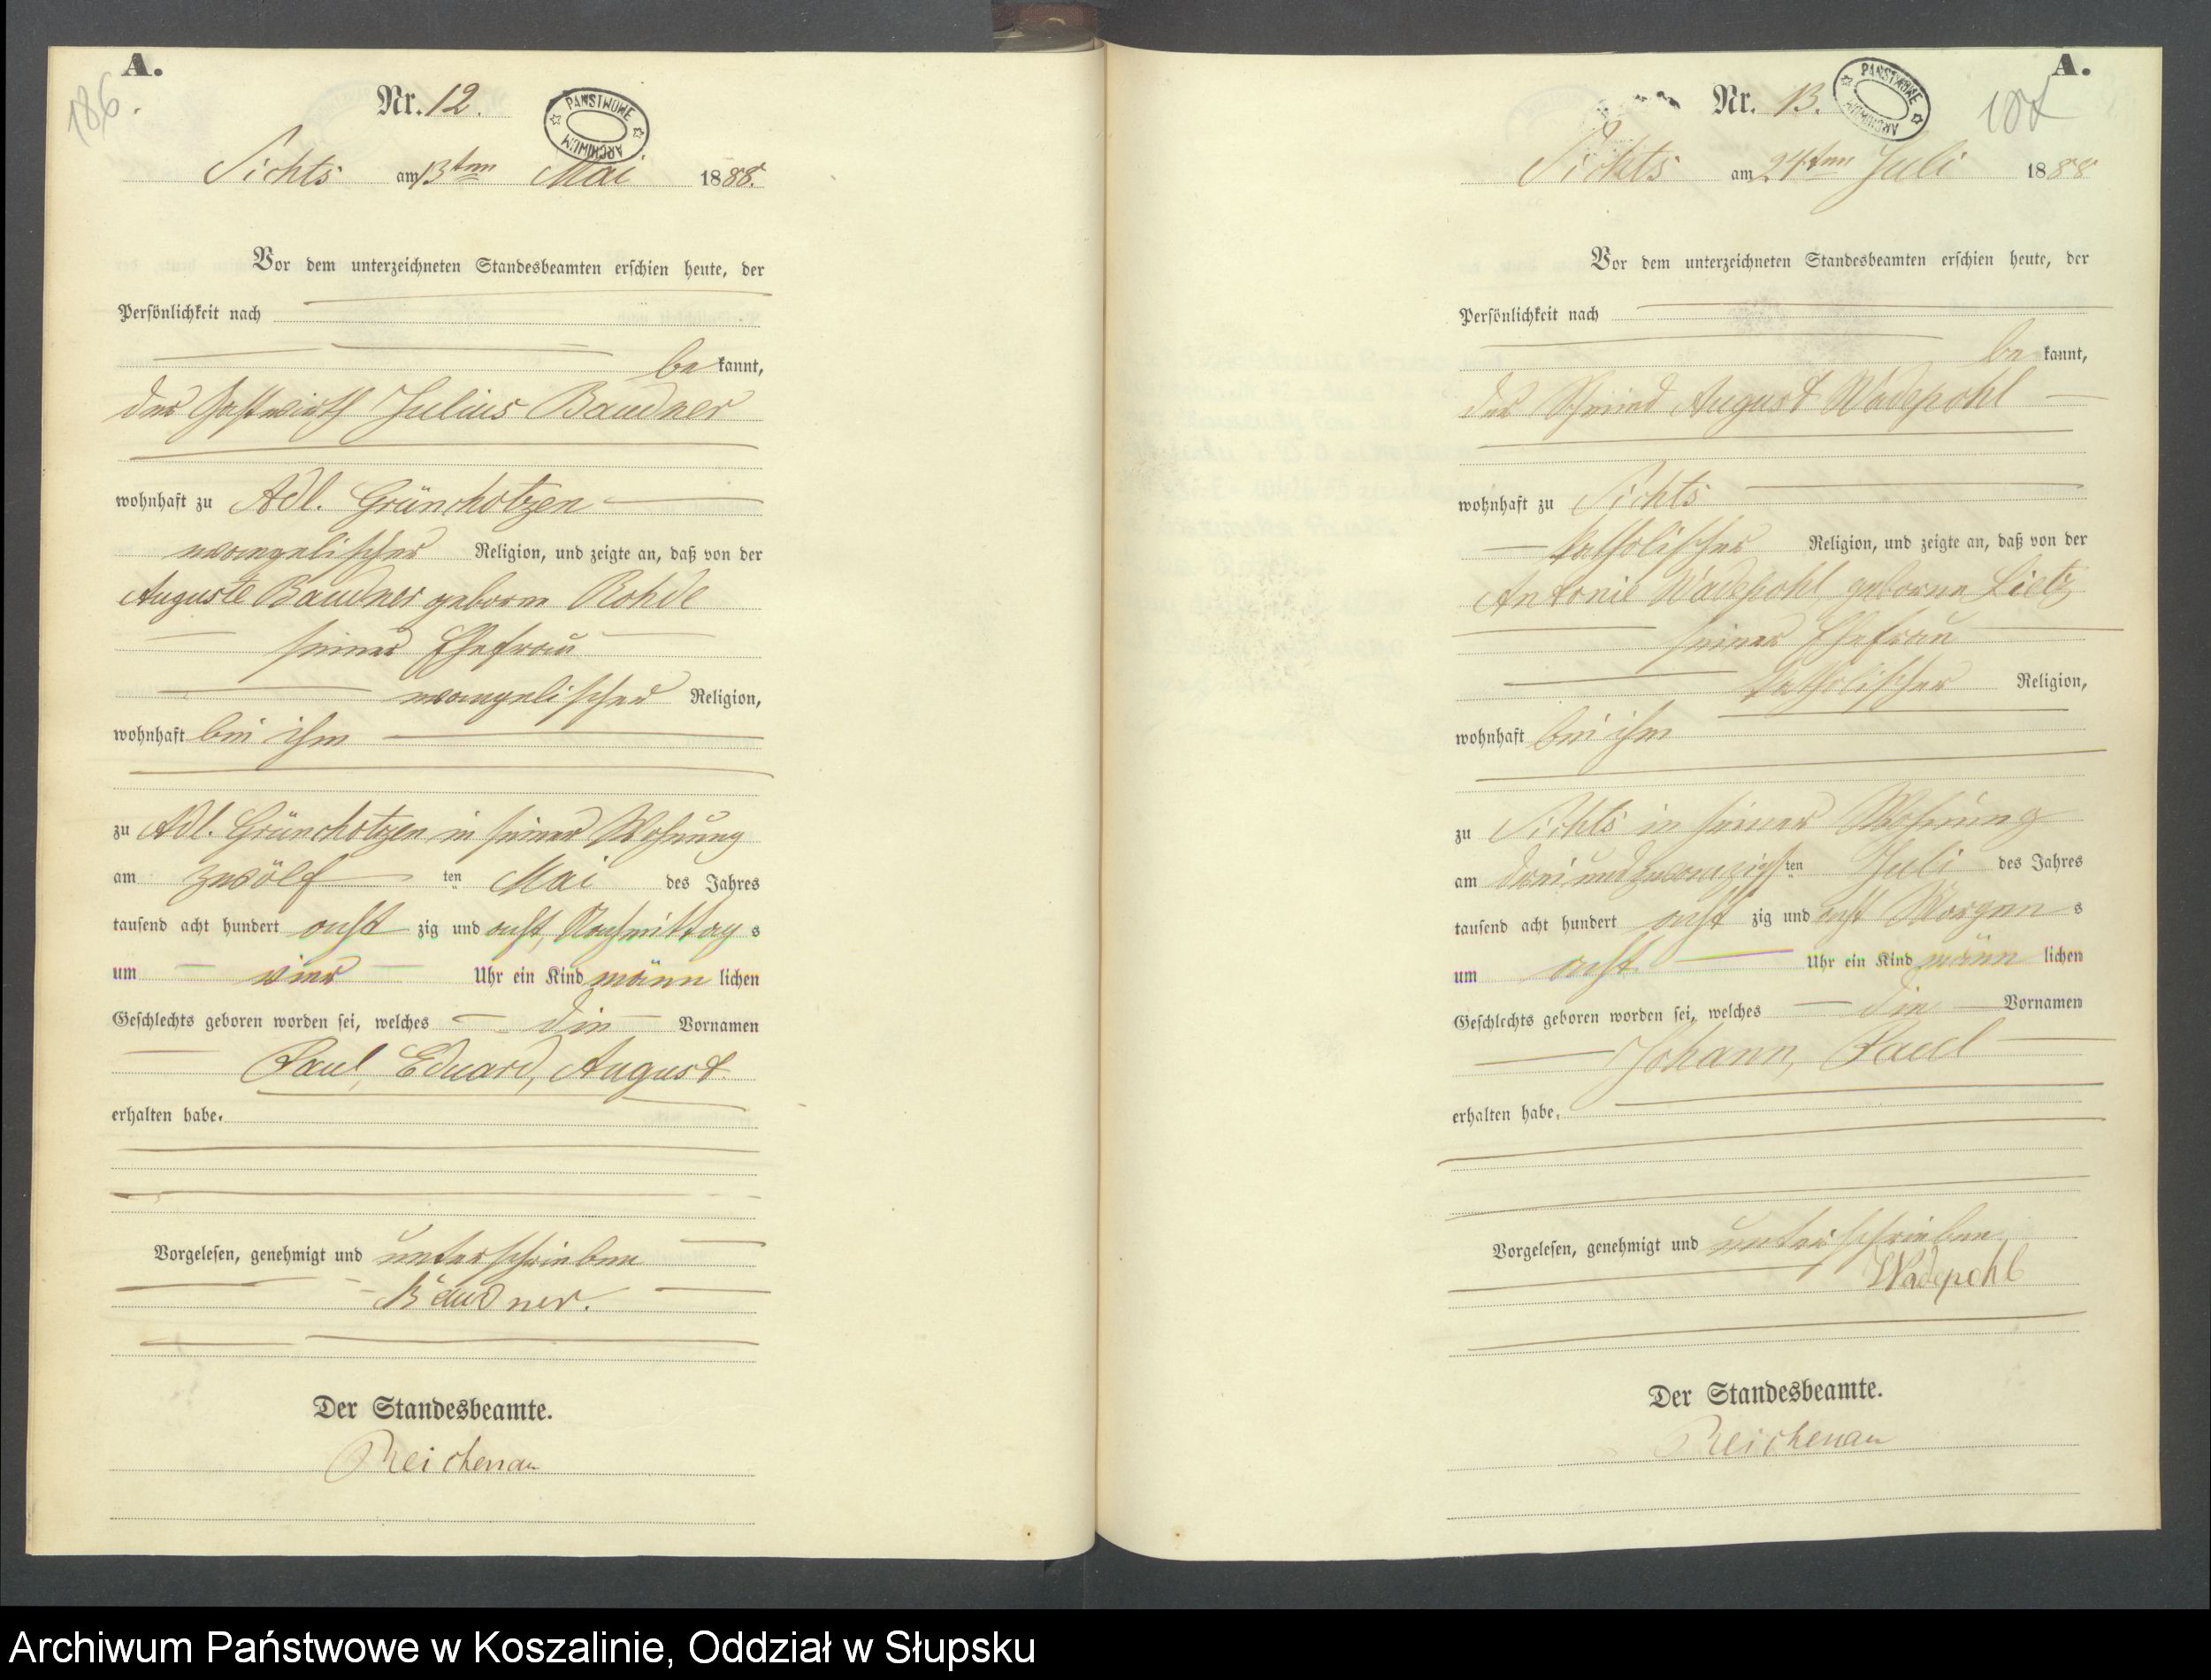 A.
186.
Nr. 12.
PAŃSTWOWE
ARCHIWUM
Sichts am 13ten Mai 1888.
Vor dem unterzeichneten Standesbeamten erschien heute, der
Persönlichkeit nach
be kannt,
der Gastwirth Julius Baudner
wohnhaft zu Adl. Grünchotzen
evangelischer Religion, und zeigte an, daß von der
Auguste Baudner geborne Rohde
seiner Ehefrau
evangelischer Religion,
wohnhaft bei ihm
zu Adl. Grünchotzen in seiner Wohnung
am zwölf ten Mai des Jahres
tausend acht hundert acht zig und acht, Nachmittag s
um vier Uhr ein Kind männ lichen
Geschlechts geboren worden sei, welches die Vornamen
Paul, Eduard, August
erhalten habe.
Vorgelesen, genehmigt und unterschrieben
Baudner.
Der Standesbeamte.
Reichenau
A.
Nr. 13.
PAŃSTWOWE
ARCHIWUM
187
Sichts am 24ten Juli 1888
Vor dem unterzeichneten Standesbeamten erschien heute, der
Persönlichkeit nach
be kannt,
der Schmied August Wadepohl
wohnhaft zu Sichts
katholischer Religion, und zeigte an, daß von der
Antonie Wadepohl geborne Lietz
seiner Ehefrau
katholischer Religion,
wohnhaft bei ihm
zu Sichts in seiner Wohnung
am dreiundzwanzigs ten Juli des Jahres
tausend acht hundert acht zig und acht Morgen s
um acht Uhr ein Kind männ lichen
Geschlechts geboren worden sei, welches die Vornamen
Johann, Paul
erhalten habe.
Vorgelesen, genehmigt und unterschrieben
Wadepohl
Der Standesbeamte.
Reichenau
Archiwum Państwowe w Koszalinie, Oddział w Słupsku